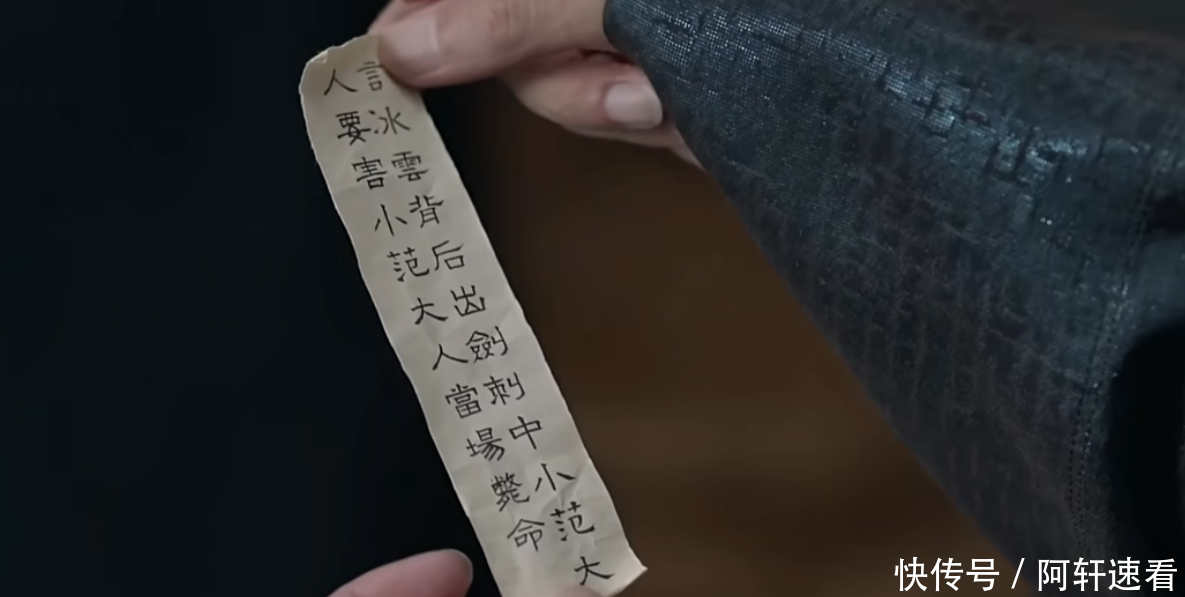 言冰雲背后出劍刺中小范大
人要害小范大人當場斃命
快传号 / 阿轩速看